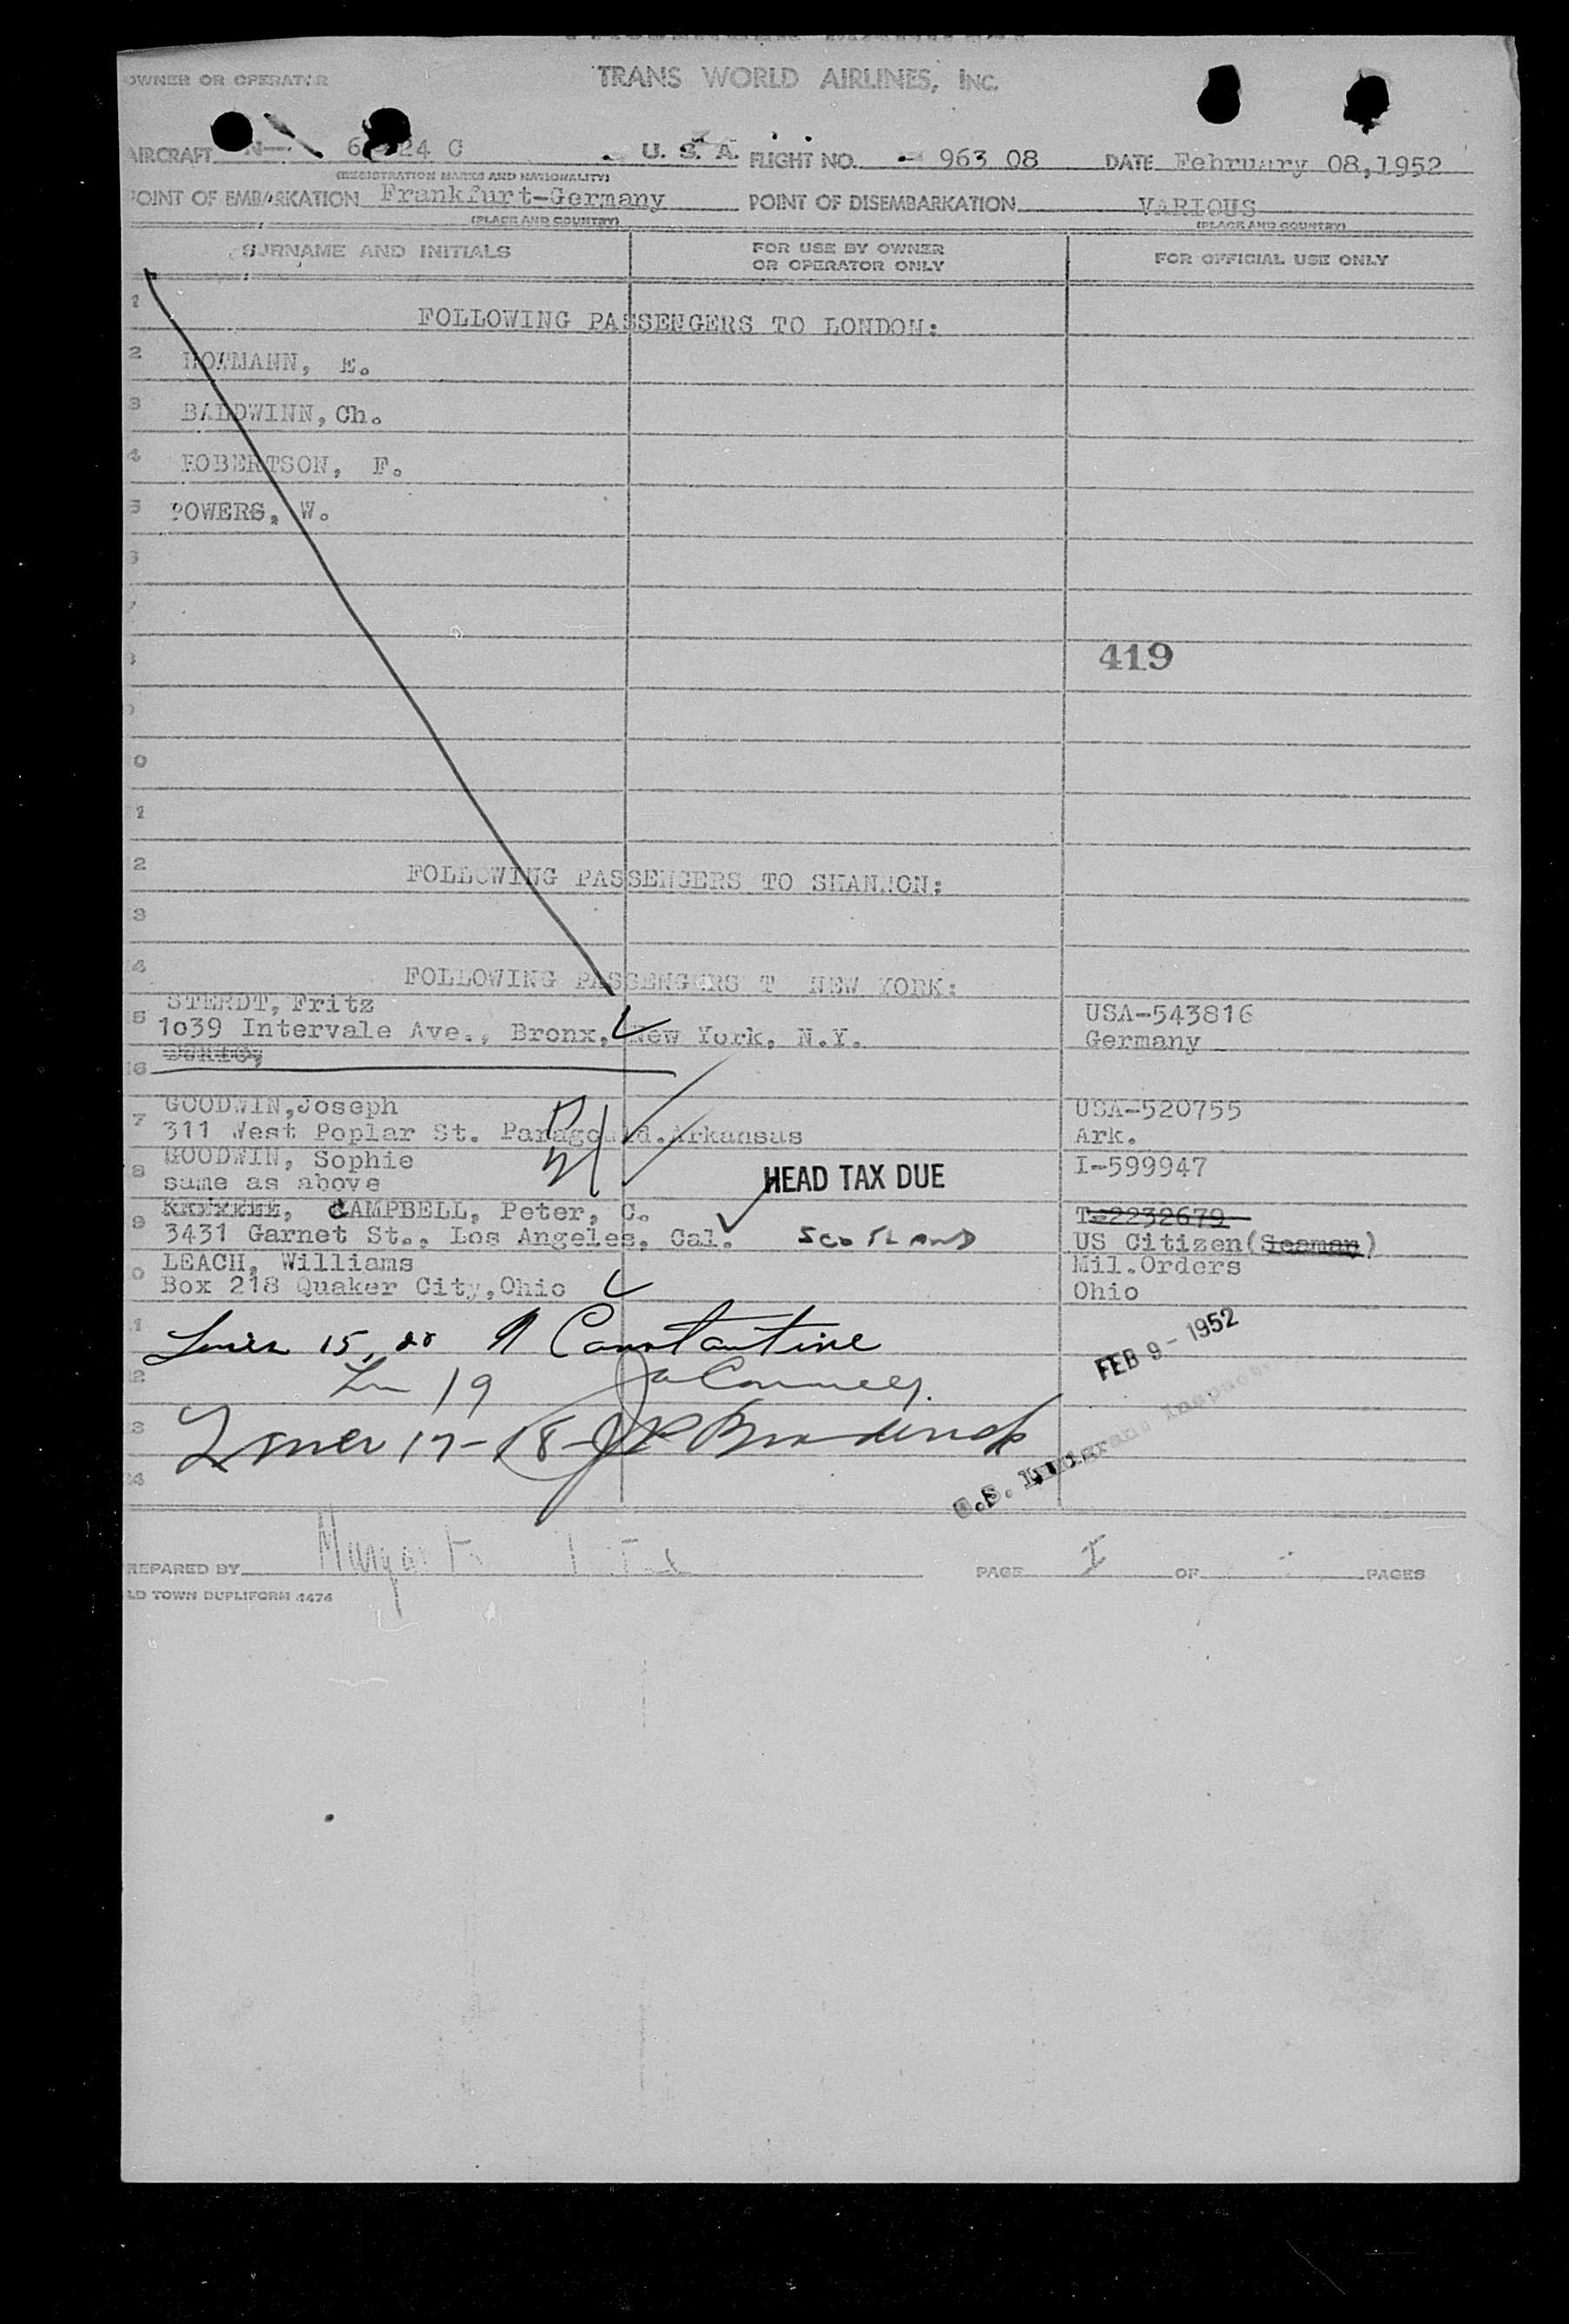 OWNER OR OPERATOR TRANS WORLD AIRLINES, INC.
AIRCRAFT N- 6 24 C U. S. A. FLIGHT NO. - 963 08 DATE February 08,1952
(REGISTRATION MARKS AND NATIONALITY)
POINT OF EMBARKATION Frankfurt-Germany POINT OF DISEMBARKATION VARIOUS
(PLACE AND COUNTRY) (PLACE AND COUNTRY)
SURNAME AND INITIALS FOR USE BY OWNER OR OPERATOR ONLY FOR OFFICIAL USE ONLY
1 FOLLOWING PASSENGERS TO LONDON:
2 E.
3 BALDWINN, Ch.
4 ROBERTSON, F.
5 POWERS, W.
419
0
1
2 FOLLOWING PASSENGERS TO SHANNON:
3
4 FOLLOWING PASSENGERS T NEW YORK:
STERDT, Fritz USA-543816
5 1o39 Intervale Ave., Bronx, New York, N.Y. Germany
6
GOODWIN,Joseph USA-520755
7 311 West Poplar St. Paragould.Arkansas Ark.
8 GOODWIN, Sophie I-599947
same as above HEAD TAX DUE
9 CAMPBELL, Peter, C. T-2232679
3431 Garnet St., Los Angeles, Cal. SCOTLAND US Citizen(Seaman)
LEACH, Williams Mil.Orders
0 Box 218 Quaker City,Ohio Ohio
1 15, 20 Constantine FEB 9 - 1952
2 19
3 17-18
4 U.S.
PREPARED BY PAGE I OF PAGES
LD TOWN DUPLIFORM 4474